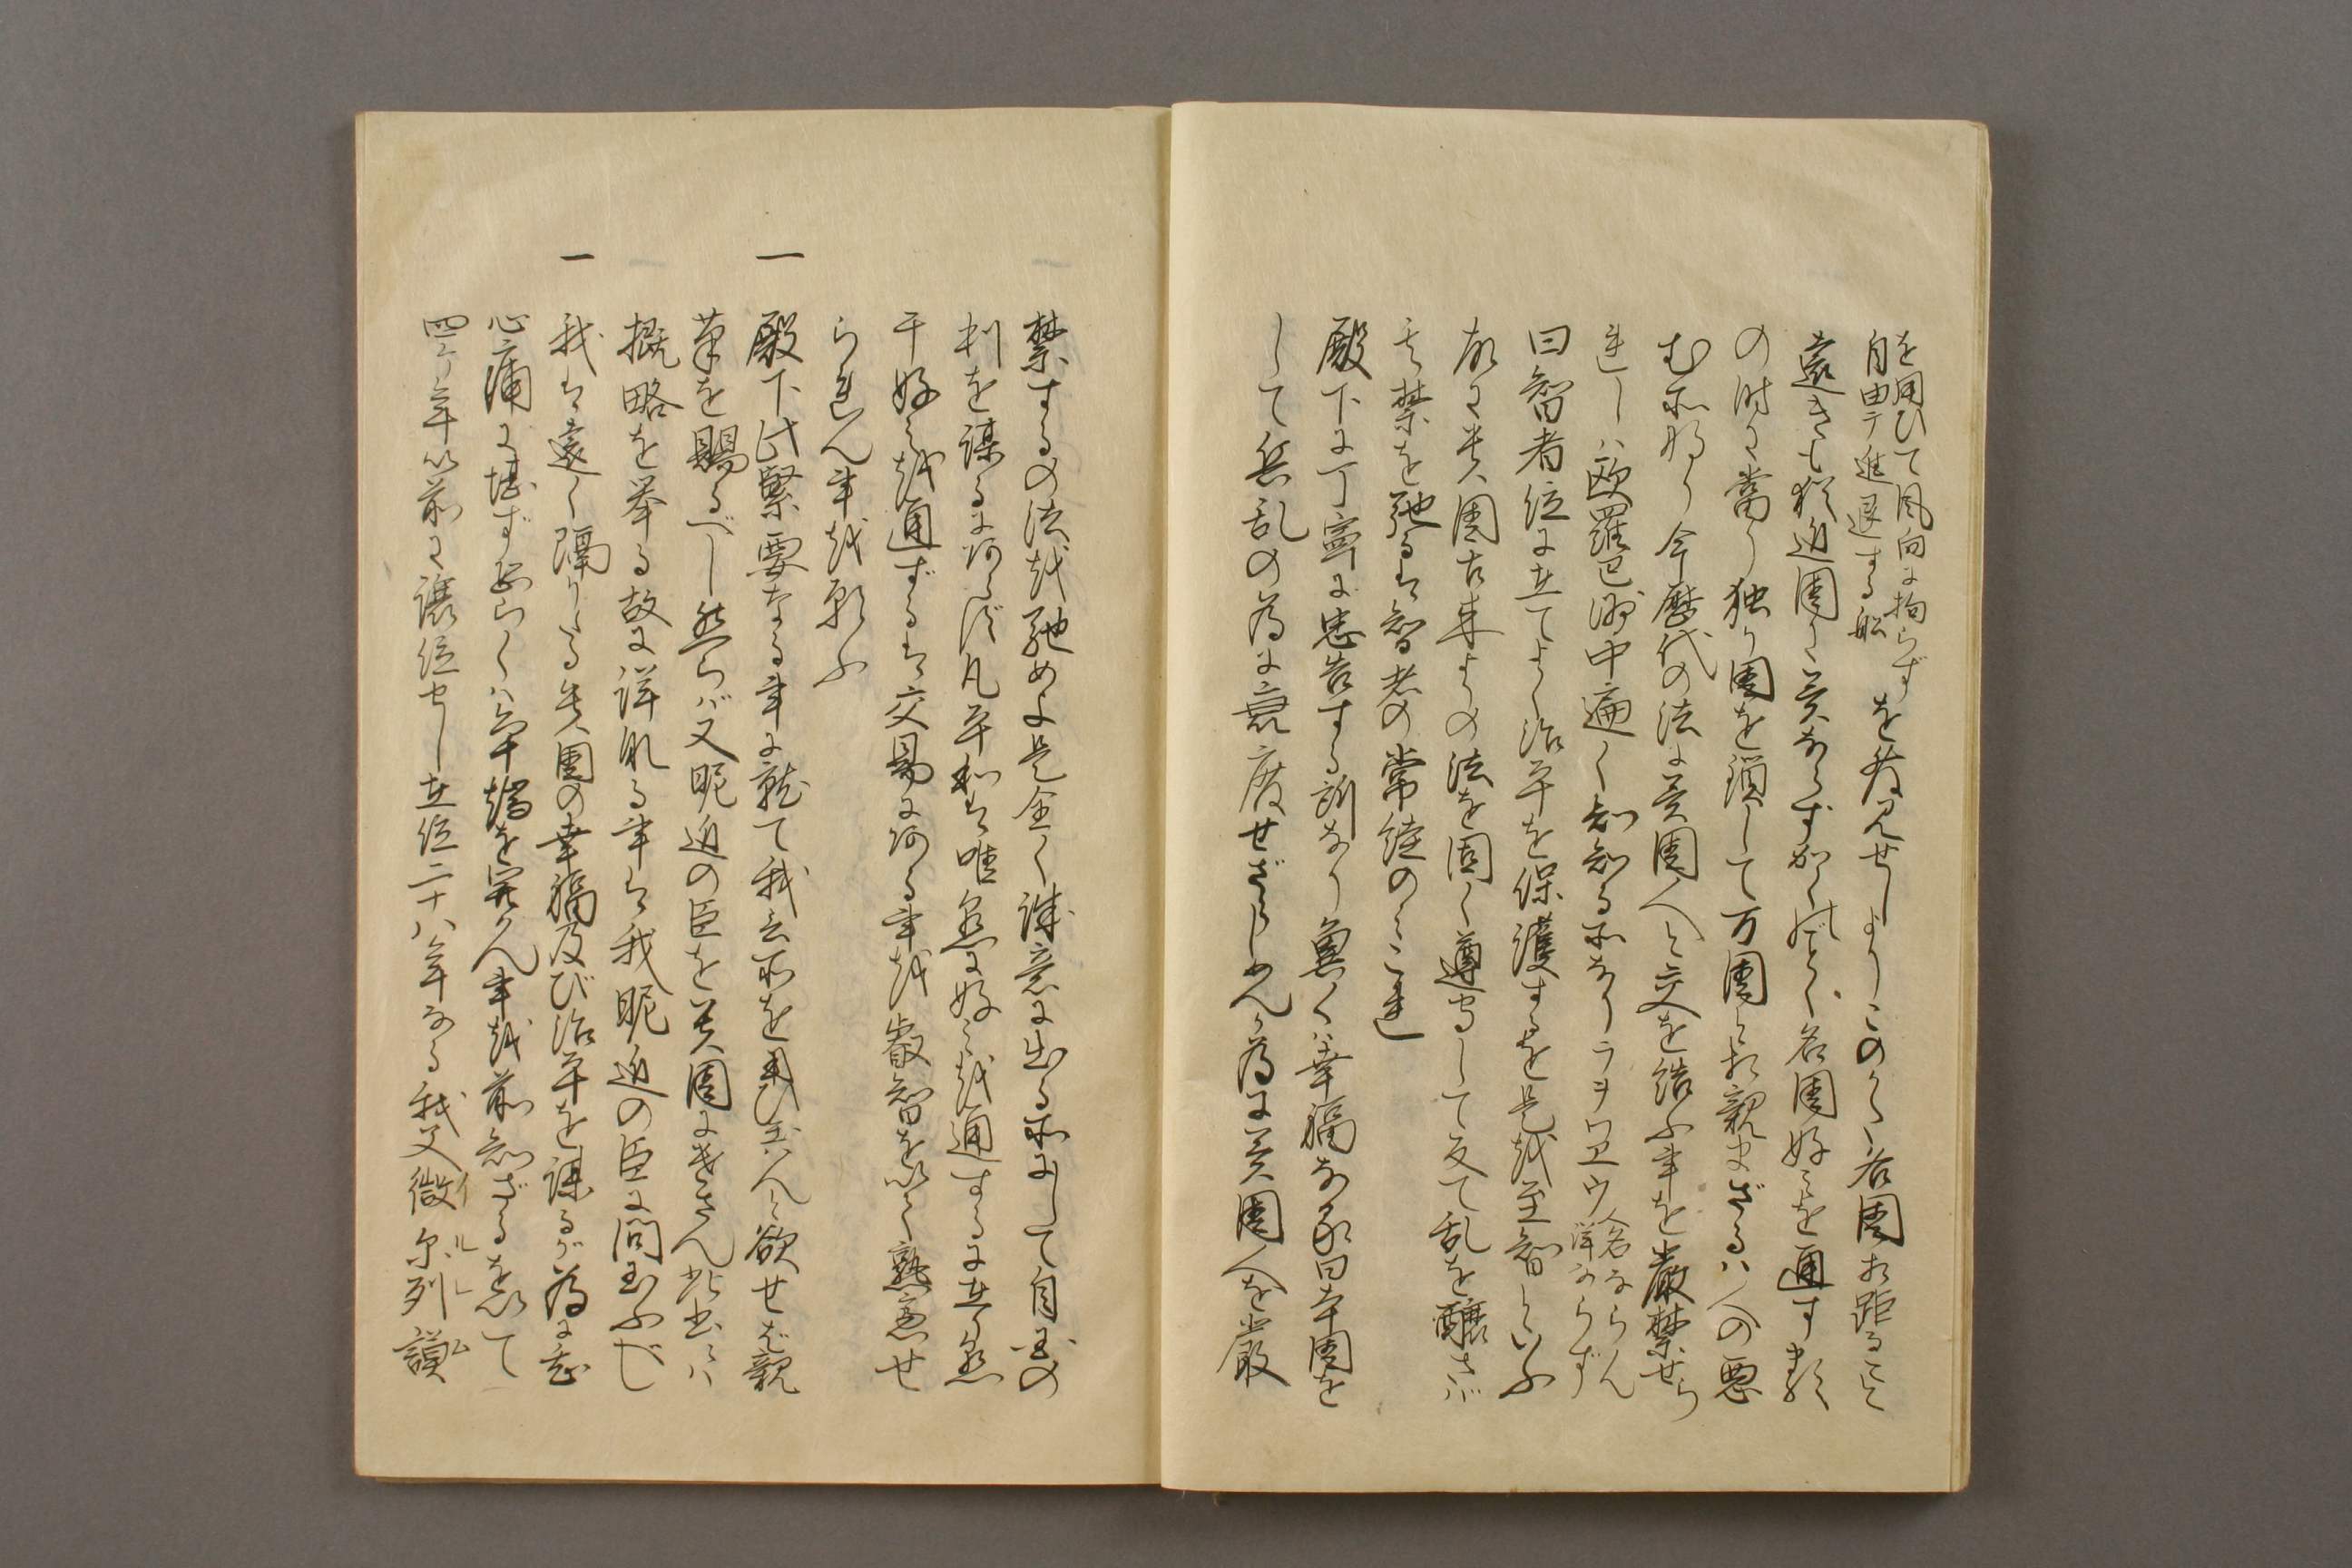 を用ひて風向に拘らず
自由ニ進退する船
を発見せしよりこのかた各国相距ること
遠きも猶近国に異ならず如此く各国好みを通ず類
の時に当り独り国を鎖して万国と相親まざるハ人の悪
む所なり今歴代の法に異国人と交を結ふ事を厳禁せら
れしハ欧羅巴洲中遍く知る所なりラヲワエウ
人名ならん
詳ならず
曰智者位に立てよく治平を保護するを是を至智といふ
故に貴国古来よりの法を固く遵守して反て乱を醸さバ
其禁を弛るは智者の常経のミこれ
殿下に丁寧に忠告する訓なり冀くハ幸福なる日本国を
して兵乱の為に荒廃せざらしめんが為に異国人を厳
禁するの法を弛めよ是全く誠意に出る所にして自国の
利を謀るに非ず凡平和は唯懇に好を通するに在り懇
に好を通ずるは交易に在る事を叡智を以て熟慮せ
られん事を願ふ
一
殿下此緊要なる事に就て我言所を用ひ玉ハんと欲せば親
筆を賜るべし然らバ又昵近の臣を貴国にまゐさん此書にハ
概略を挙る故に詳なる事は我昵近の臣に問玉ふべし
一
我は遠く隔りたる貴国の幸福及び治平を謀るが為に
心痛に堪ず恐らくハ争端を開かん事を前知ざるを以て
四ヶ年以前に譲位せし在位二十八年なる我父微尓列謨
イルレム